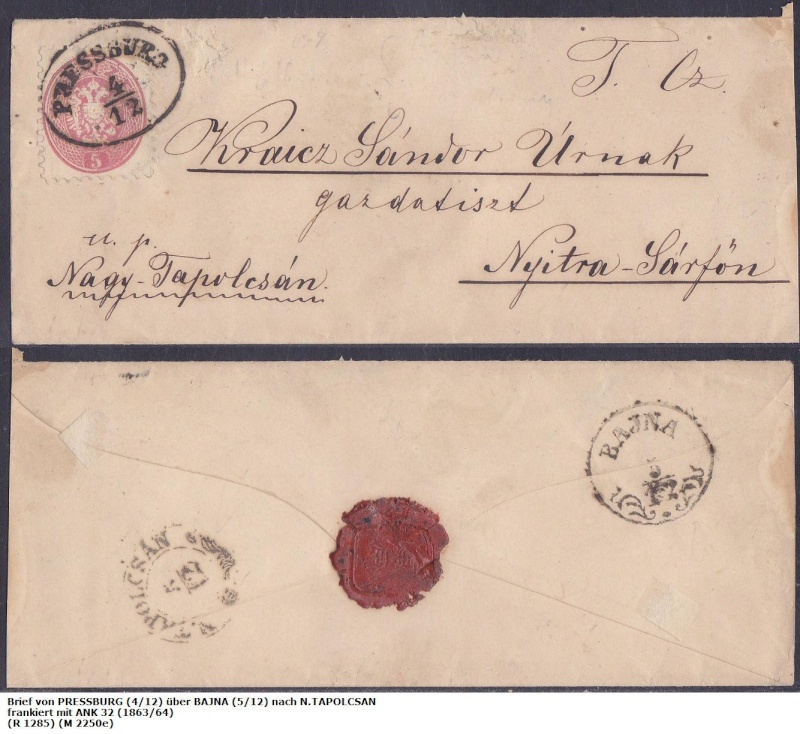 PRESSBURG
4/12
5
T. Cz.
Kraicz Sándor Úrnak
gazdatiszt
u. p.
Nagy-Tapolcsán.
Nyitra-Sárfőn
BAJNA
5/12
N.TAPOLCSÁN
5/12
Brief von PRESSBURG (4/12) über BAJNA (5/12) nach N.TAPOLCSAN
frankiert mit ANK 32 (1863/64)
(R 1285) (M 2250e)